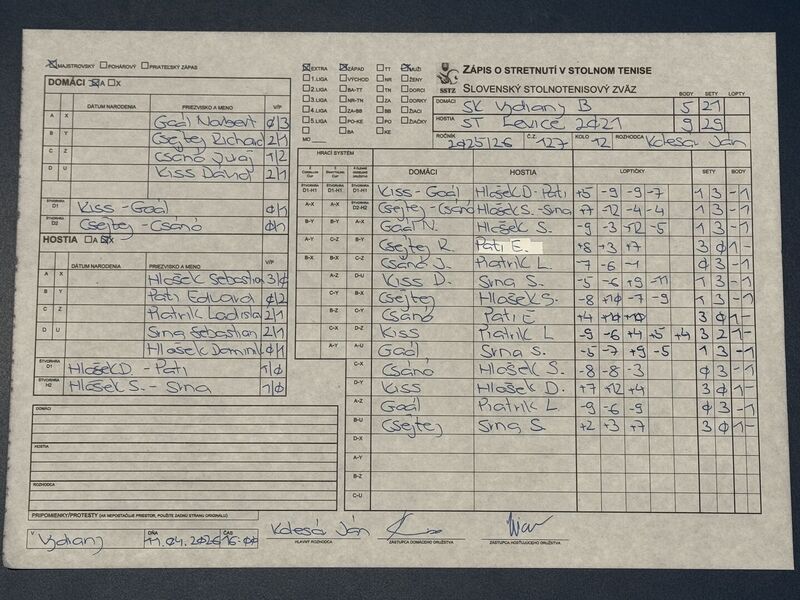 MAJSTROVSKÝ POHÁROVÝ PRIATEĽSKÝ ZÁPAS
DOMÁCI A X
DÁTUM NARODENIA PRIEZVISKO A MENO V/P
A X Gaál Norbert 0/3
B Y Csejtej Richard 2/1
C Z Csánó Juraj 1/2
D U Kiss Dávid 2/1
ŠTVORHRA D1 Kiss - Gaál 0/1
ŠTVORHRA D2 Csejtej - Csánó 0/1
HOSTIA A X
DÁTUM NARODENIA PRIEZVISKO A MENO V/P
A X Hlošek Sebastian 3/0
B Y Pati Eduard 0/2
C Z Piatrik Ladislav 2/1
D U Srna Sebastian 2/1
Hlošek Dominik 0/1
ŠTVORHRA H1 Hlošek D - Pati 1/0
ŠTVORHRA H2 Hlošek S. - Srna 1/0
DOMÁCI
HOSTIA
ROZHODCA
PRIPOMIENKY/PROTESTY (AK NEPOSTAČUJE PRIESTOR, POUŽITE ZADNÚ STRANU ORIGINÁLU)
V Vydrany DŇA 11.04.2026 ČAS 16:00
EXTRA ZÁPAD TT MUŽI
1.LIGA VÝCHOD NR ŽENY
2.LIGA BA-TT TN DORCI
3.LIGA NR-TN ZA DORKY
4.LIGA ZA-BB BB ŽIACI
5.LIGA PO-KE PO ŽIAČKY
BA KE
MO
SSTZ
ZÁPIS O STRETNUTÍ V STOLNOM TENISE
SLOVENSKÝ STOLNOTENISOVÝ ZVÄZ
BODY SETY LOPTY
DOMÁCI SK Vydrany B 5 21
HOSTIA ST Levice 2021 9 29
ROČNÍK 2025/26 Č.Z. 127 KOLO 12 ROZHODCA Kolesár Ján
HRACÍ SYSTÉM DOMÁCI HOSTIA LOPTIČKY SETY BODY
D1-H1 Kiss - Gaál Hlošek D - Pati +5 -9 -9 -7 1 3 - 1
D2-H2 Csejtej - Csánó Hlošek S. - Srna +7 -12 -4 -4 1 3 - 1
A-X B-Y Gaál N. Hlošek S. -9 -3 +12 -5 1 3 - 1
A-Y C-Z B-Y Csejtej R. Pati E. +8 +3 +7 3 0 1 -
B-X B-X C-Z Csánó J. Piatrik L. -7 -6 -1 0 3 - 1
A-Z D-U Kiss D. Srna S. -5 -6 +9 -11 1 3 - 1
C-Y B-X Csejtej Hlošek S. -8 +10 -7 -9 1 3 - 1
B-Z C-Y Csánó Pati E +4 +10 +10 3 0 1 -
C-X D-Z Kiss Piatrik L -9 -6 +4 +5 +4 3 2 1 -
A-Y A-U Gaál Srna S. -5 -7 +9 -5 1 3 - 1
C-X Csánó Hlošek S -8 -8 -3 0 3 - 1
D-Y Kiss Hlošek D. +7 +12 +4 3 0 1 -
A-Z Gaál Piatrik L -9 -6 -9 0 3 - 1
B-U Csejtej Srna S. +2 +3 +7 3 0 1 -
D-X
A-Y
B-Z
C-U
Kolesár Ján
HLAVNÝ ROZHODCA ZÁSTUPCA DOMÁCEHO DRUŽSTVA ZÁSTUPCA HOSŤUJÚCEHO DRUŽSTVA